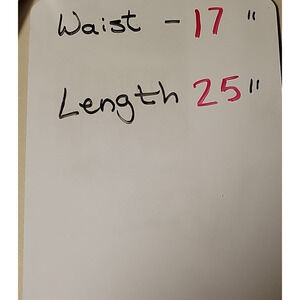 Waist - 17 "
Length 25"